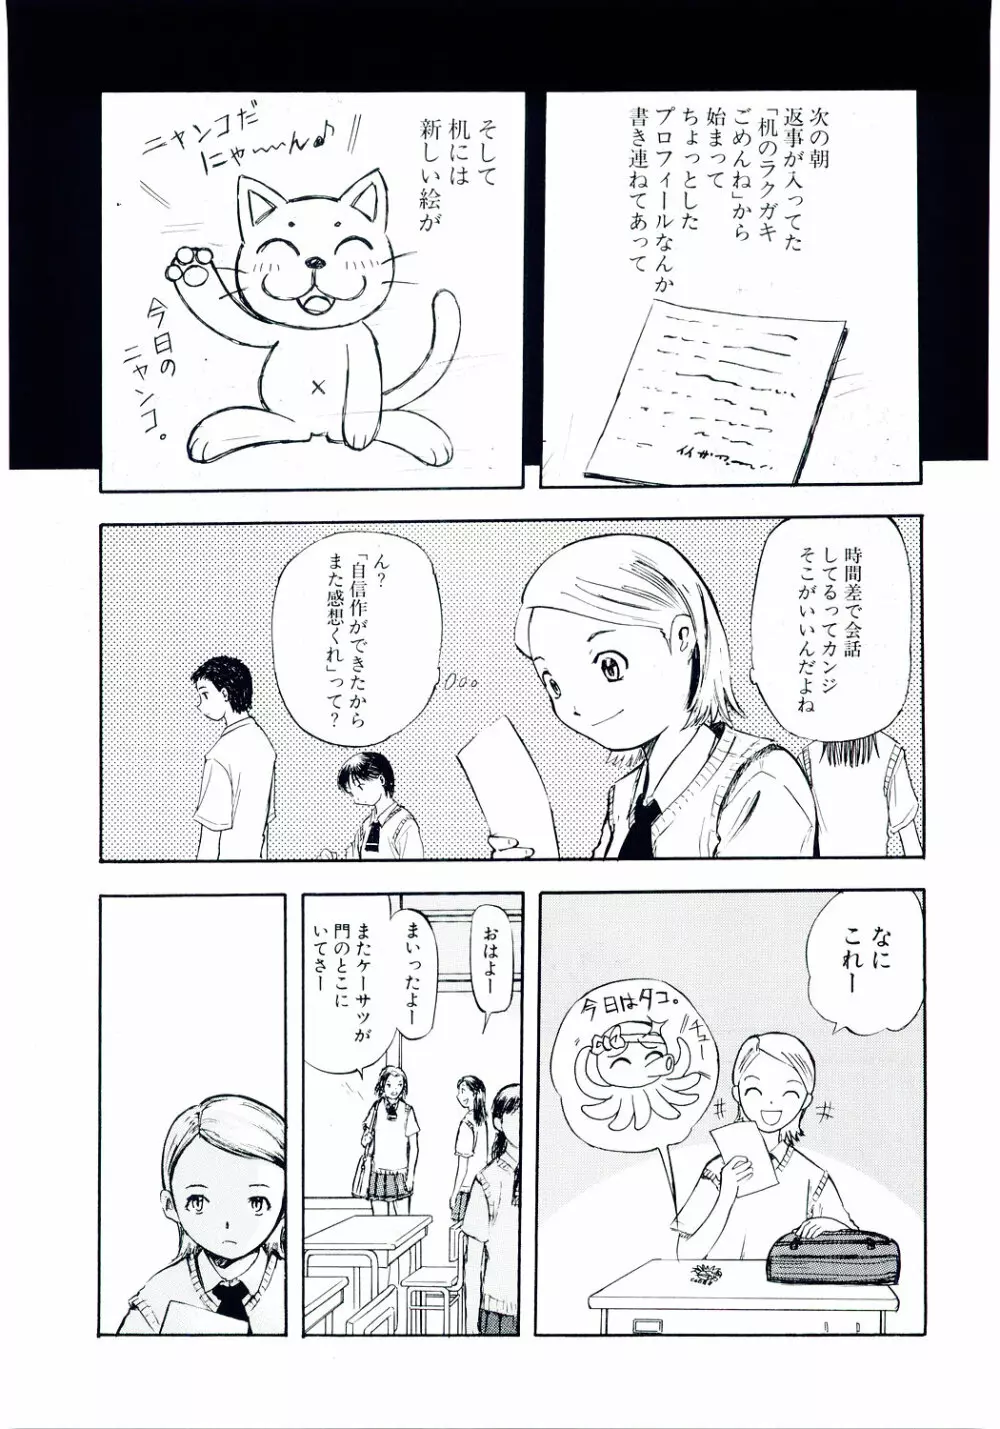 次の朝
返事が入ってた
「机のラクガキ
ごめんね」から
始まって
ちょっとした
プロフィールなんか
書き連ねてあって
そして
机には
新しい絵が
ニャンコだ
にゃ〜〜ん♪
今日の
ニャンコ。
時間差で会話
してるってカンジ
そこがいいんだよね
ん？
「自信作ができたから
また感想くれ」って？
なに
これー
今日はタコ。
チュー
おはよー
まいったよー
またケーサツが
門のとこに
いてさー